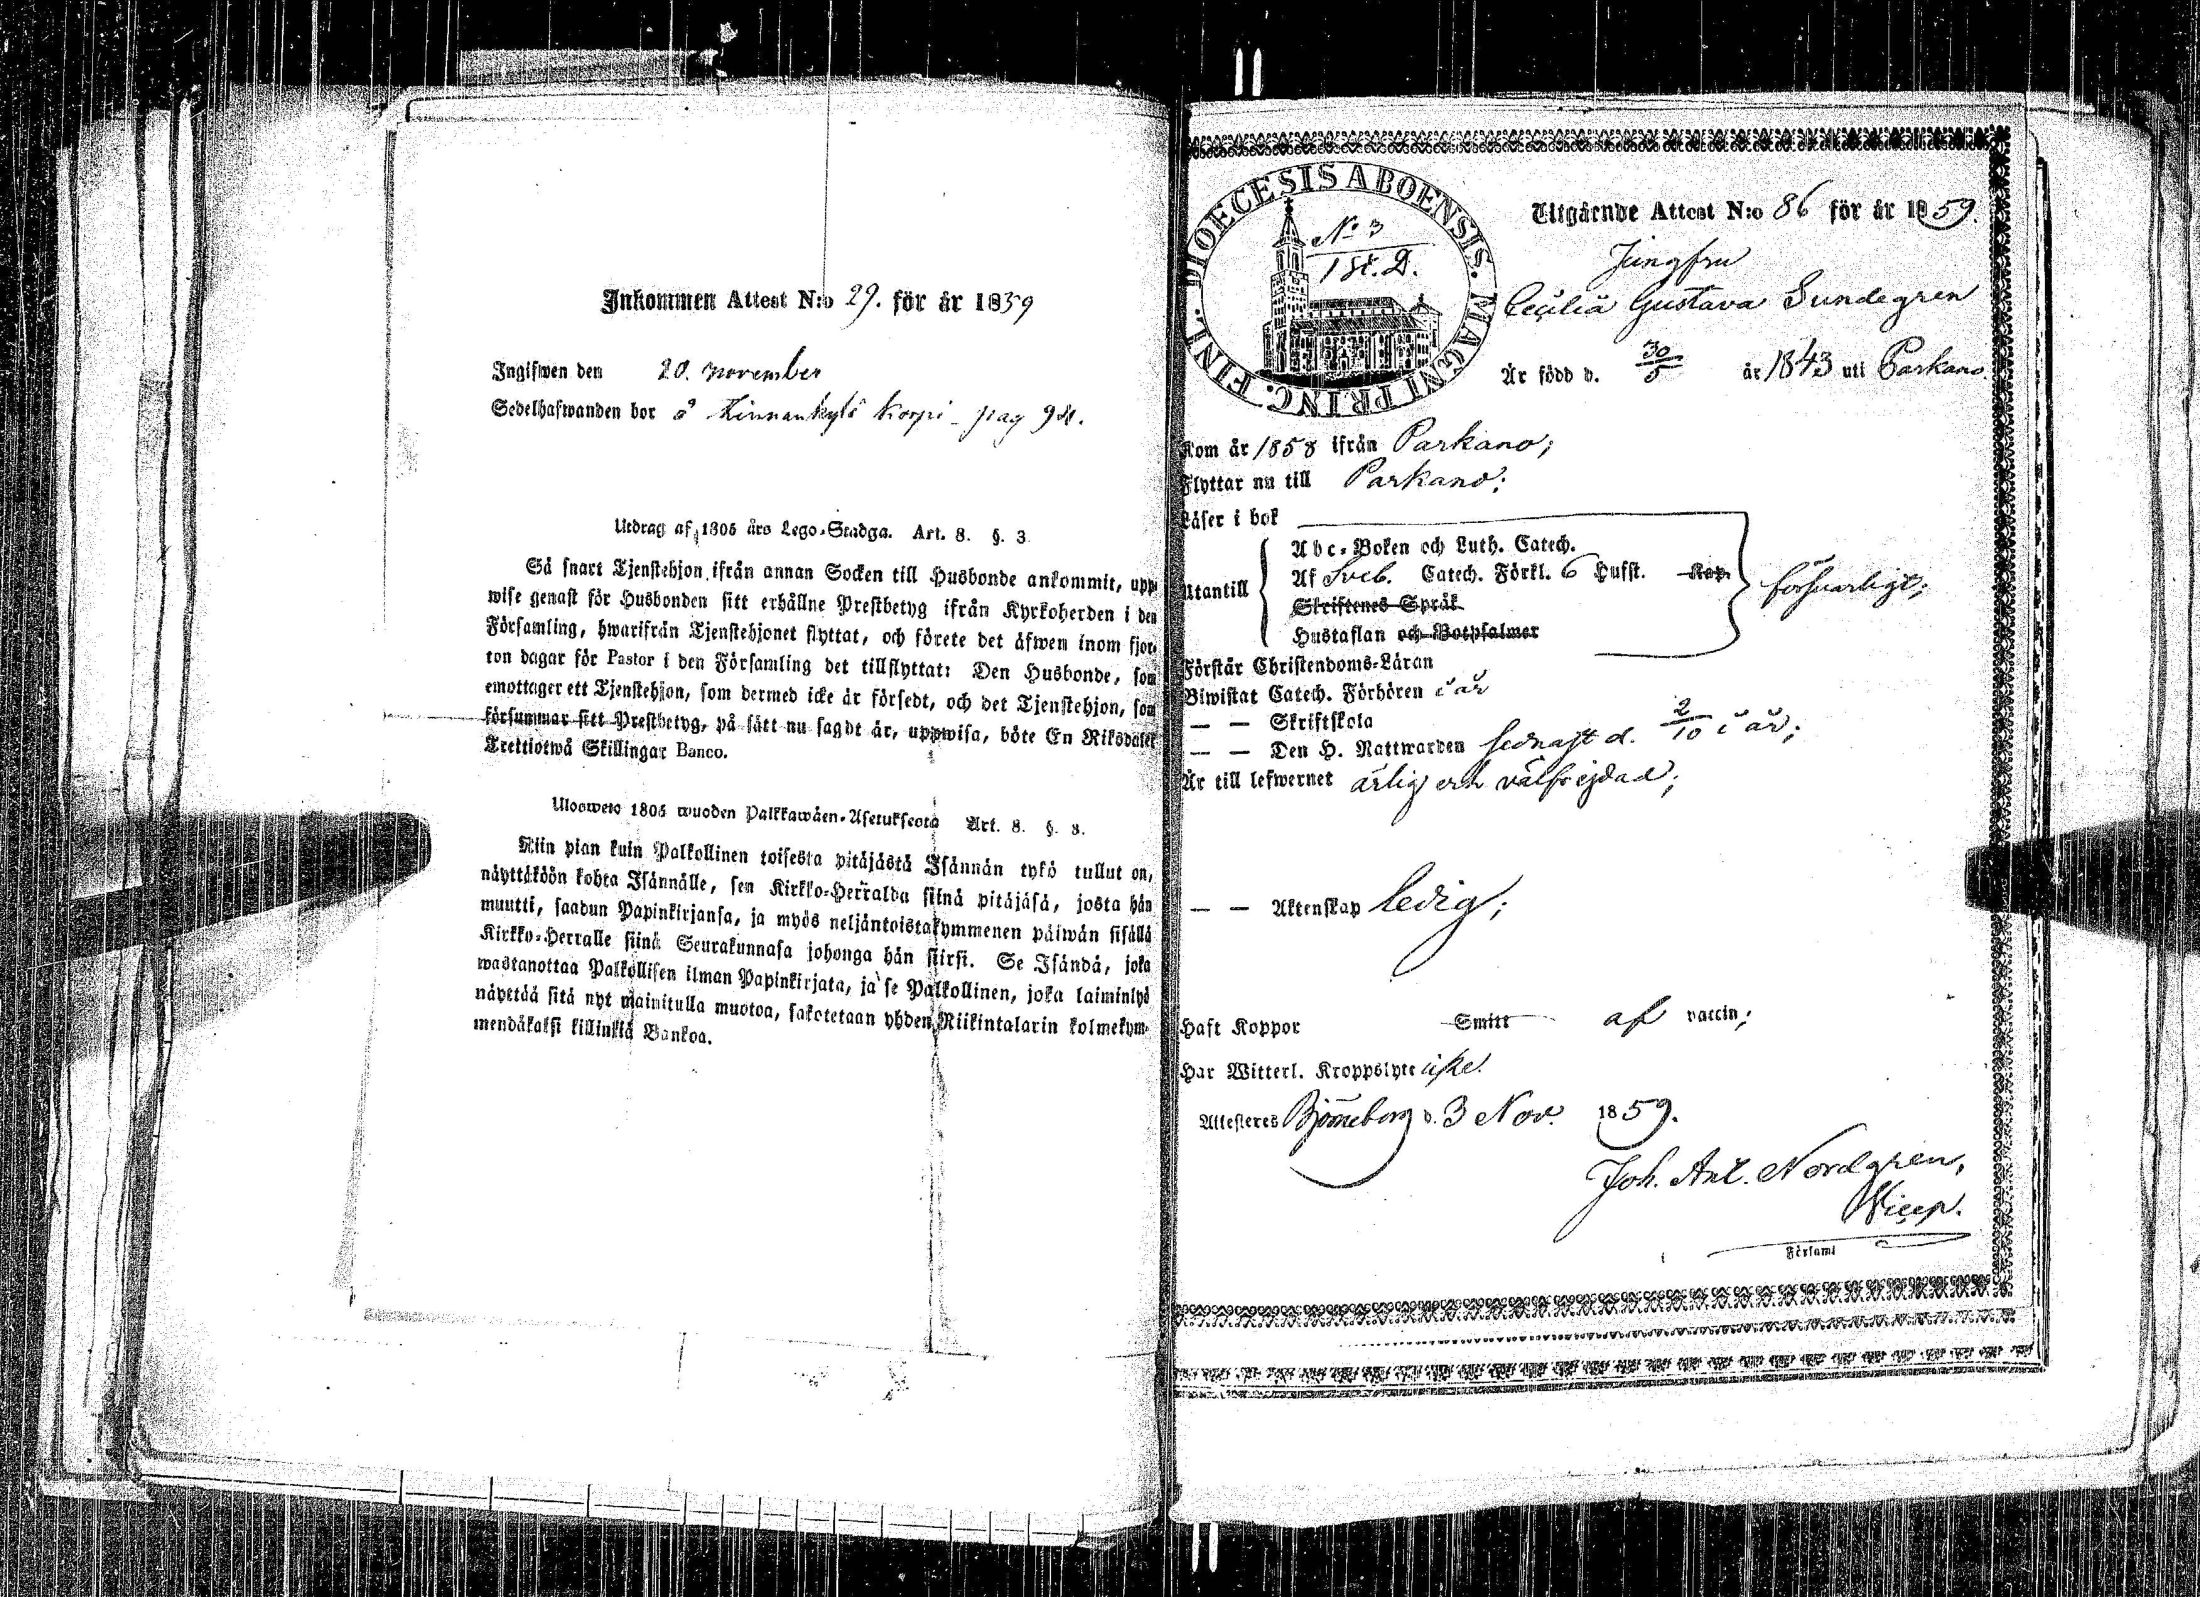 Inkommen Attest N:o 29. för år 1859
Ingifwen den 20. november
Sedelhafwanden bor å Kinnankylä Korpi - pag
Utdrag af 1805 års Lego-Stadga. Art. 8. §. 3.
Så snart Tjenstehjon ifrån annan Socken till Husbonde ankommit, upp-
wise genast för Husbonden sitt erhållne Prestbetyg ifrån Kyrkoherden i den
Församling, hwarifrån Tjenstehjonet flyttat, och förete det äfwen inom fjor-
ton dagar för Pastor i den Församling det tillflyttat: Den Husbonde, som
emottager ett Tjenstehjon, som dermed icke är försedt, och det Tjenstehjon, som
försummar sitt Prestbetyg, på sätt nu sagdt är, uppwisa, böte En Riksdaler
Trettiotwå Skillingar Banco.
Ulosweto 1805 wuoden Palkkawäen-Asetuksesta Art. 8. §. 3.
Niin pian kuin Palkollinen toisesta pitäjästä Isännän tykö tullut on,
näyttäköön kohta Isännälle, sen Kirkko-Herralda siinä pitäjäsä, josta hän
muutti, saadun Papinkirjansa, ja myös neljäntoistakymmenen päiwän sisällä
Kirkko-Herralle siinä Seurakunnasa johonga hän siirsi. Se Isändä, joka
wastanottaa Palkollisen ilman Papinkirjata, ja se Palkollinen, joka laiminlyö
näyttää sitä nyt mainitulla muotoa, sakotetaan yhden Riikintalarin kolmekym-
mendäkaksi killinkiä Bankoa.
DIOECESIS ABOENSIS. MAGNI PRINC. FINL.
No 3
1 St. D.
Utgående Attest N:o 86 för år 1859.
Jungfru
Cecilia Gustava Sundegren
Är född d. 30/5 år 1843 uti Parkano.
Kom år 1858 ifrån Parkano;
Flyttar nu till Parkano;
Läser i bok
Utantill
Abc-Boken och Luth. Catech.
Af Sveb. Catech. Förkl. 6 Hufst. Kap.
Skriftenes Språk
Hustaflan och Botpsalmer
försvarligt;
Förstår Christendoms-Läran
Biwistat Catech. Förhören i år
— — Skriftskola
— — Den H. Nattwarden sednast d. 2/10 i år;
Är till lefwernet ärlig och välfrejdad;
— — Äktenskap ledig;
Haft Koppor Smitt af vaccin;
Har Witterl. Kroppslyte icke.
Attesteres Björneborg d. 3 Nov. 1859.
Joh. Ant. Nordgren,
Vicep.
Församl